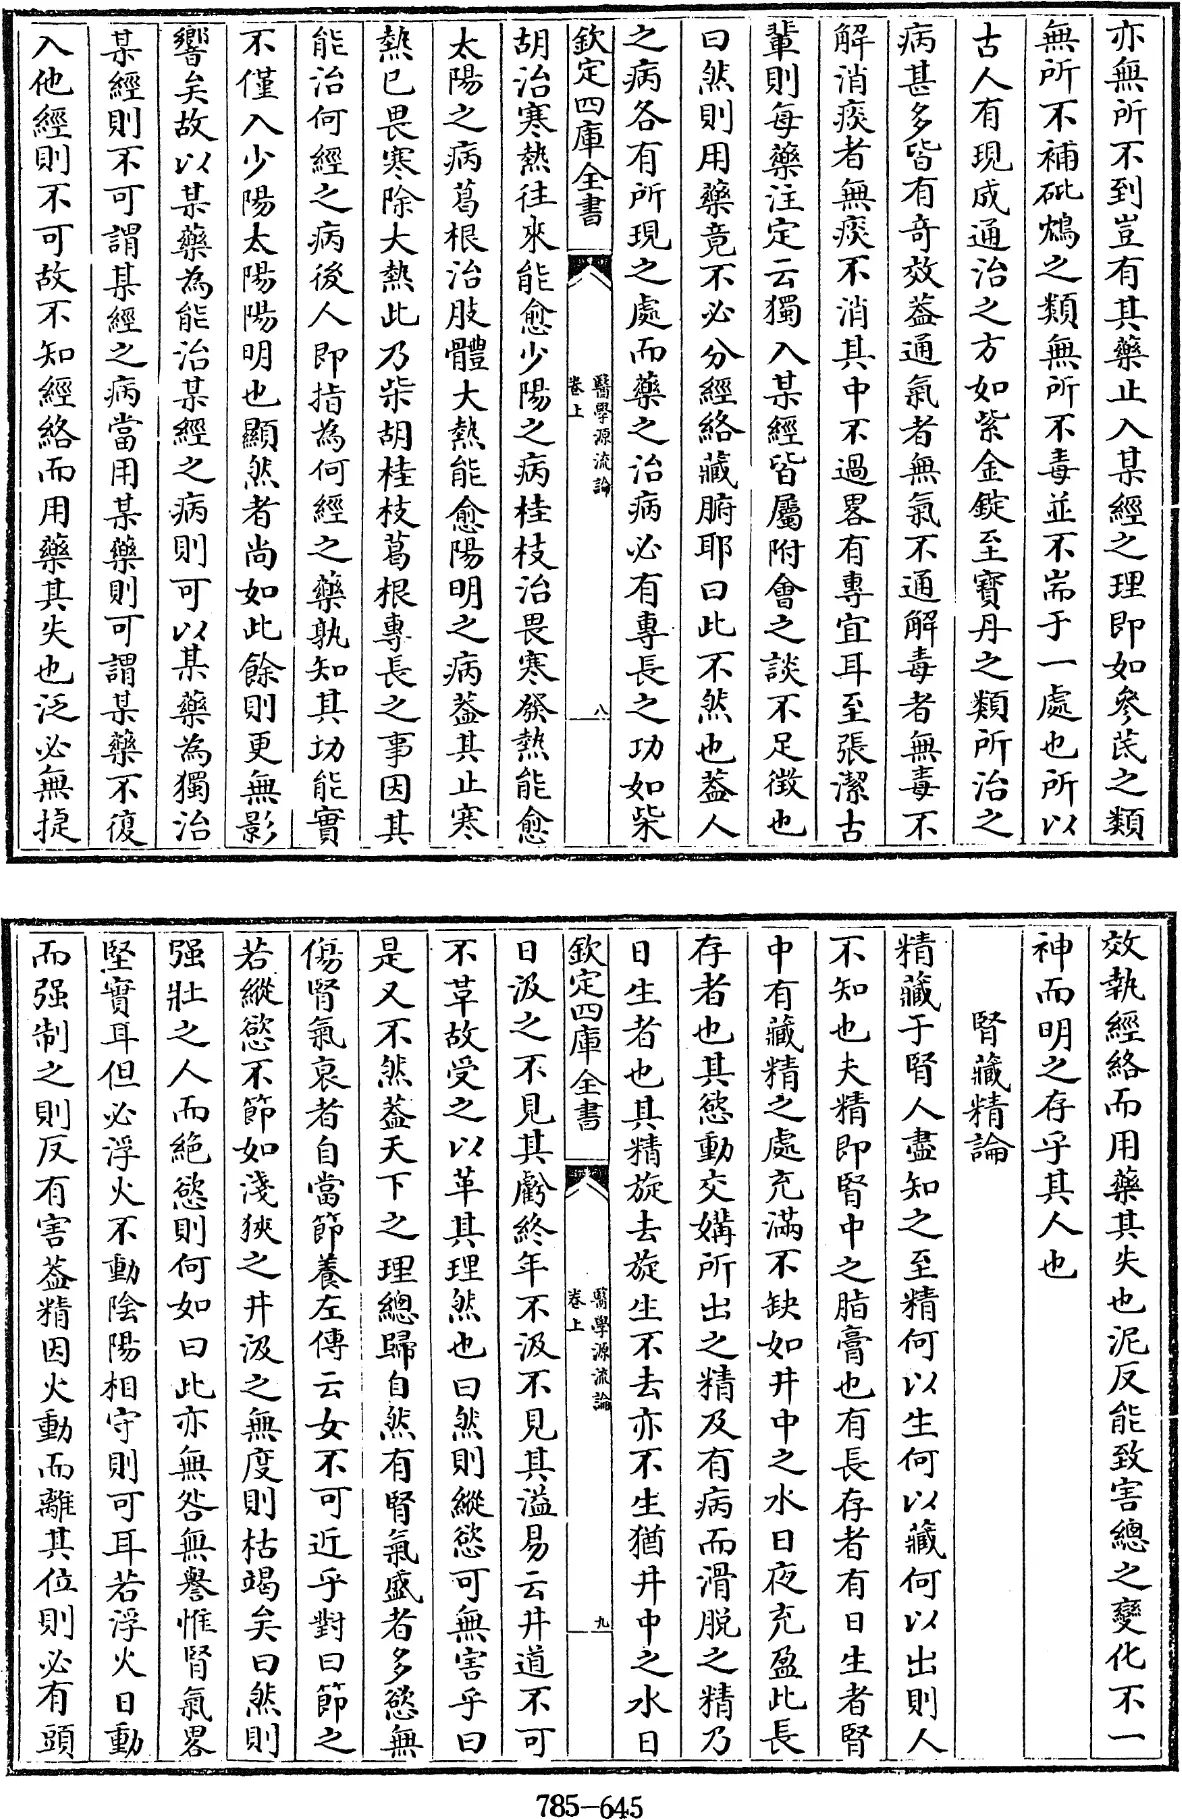 亦無所不到豈有其藥止入某經之理即如參芪之類
無所不補砒鴆之類無所不毒並不耑于一處也所以
古人有現成通治之方如紫金錠至寶丹之類所治之
病甚多皆有奇效葢通氣者無氣不通解毒者無毒不
解消痰者無痰不消其中不過畧有專宜耳至張潔古
輩則每藥注定云獨入某經皆屬附會之談不足徴也
曰然則用藥竟不必分經絡藏腑耶曰此不然也葢人
之病各有所現之處而藥之治病必有專長之功如柴
欽定四庫全書
醫學源流論
卷上
八
胡治寒熱往來能愈少陽之病桂枝治畏寒發熱能愈
太陽之病葛根治肢體大熱能愈陽明之病葢其止寒
熱已畏寒除大熱此乃柴胡桂枝葛根專長之事因其
能治何經之病後人即指為何經之藥孰知其功能實
不僅入少陽太陽陽明也顯然者尚如此餘則更無影
響矣故以某藥為能治某經之病則可以某藥為獨治
某經則不可謂某經之病當用某藥則可謂某藥不復
入他經則不可故不知經絡而用藥其失也泛必無捷
效執經絡而用藥其失也泥反能致害總之變化不一
神而明之存乎其人也
腎藏精論
精藏于腎人盡知之至精何以生何以藏何以出則人
不知也夫精即腎中之脂膏也有長存者有日生者腎
中有藏精之處充滿不缺如井中之水日夜充盈此長
存者也其慾動交媾所出之精及有病而滑脱之精乃
日生者也其精旋去旋生不去亦不生猶井中之水日
欽定四庫全書
醫學源流論
卷上
九
日汲之不見其虧終年不汲不見其溢易云井道不可
不革故受之以革其理然也曰然則縱慾可無害乎曰
是又不然葢天下之理總歸自然有腎氣盛者多慾無
傷腎氣衰者自當節養左傳云女不可近乎對曰節之
若縱慾不節如淺狹之井汲之無度則枯竭矣曰然則
强壯之人而絶慾則何如曰此亦無咎無譽惟腎氣畧
堅實耳但必浮火不動陰陽相守則可耳若浮火日動
而强制之則反有害葢精因火動而離其位則必有頭
785-645